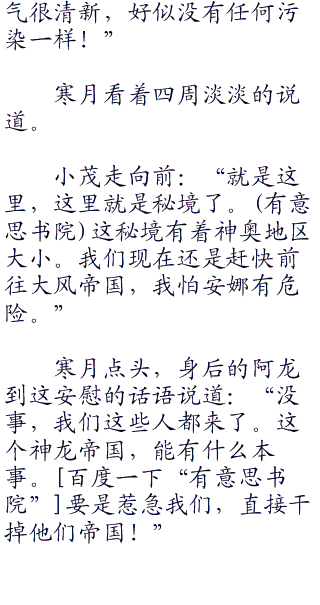 气很清新，好似没有任何污
染一样！”
寒月看着四周淡淡的说
道。
小茂走向前：“就是这
里，这里就是秘境了。(有意
思书院)这秘境有着神奥地区
大小。我们现在还是赶快前
往大风帝国，我怕安娜有危
险。”
寒月点头，身后的阿龙
到这安慰的话语说道：“没
事，我们这些人都来了。这
个神龙帝国，能有什么本
事。[百度一下“有意思书
院”]要是惹急我们，直接干
掉他们帝国！”